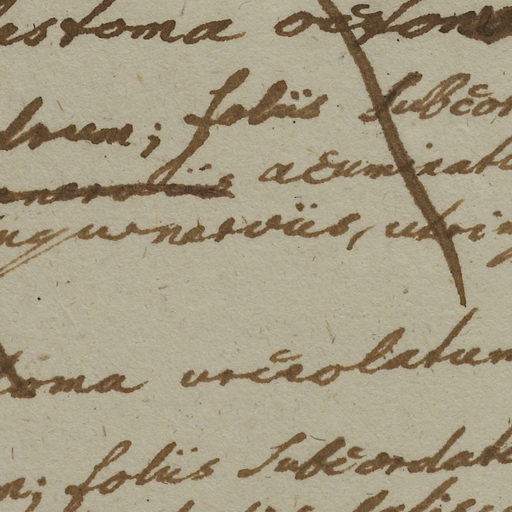 astoma octon
drum; foliis subcor
enerviis acuminat
nquenerviis, utrin
toma urceolatum
m; foliis subcordat